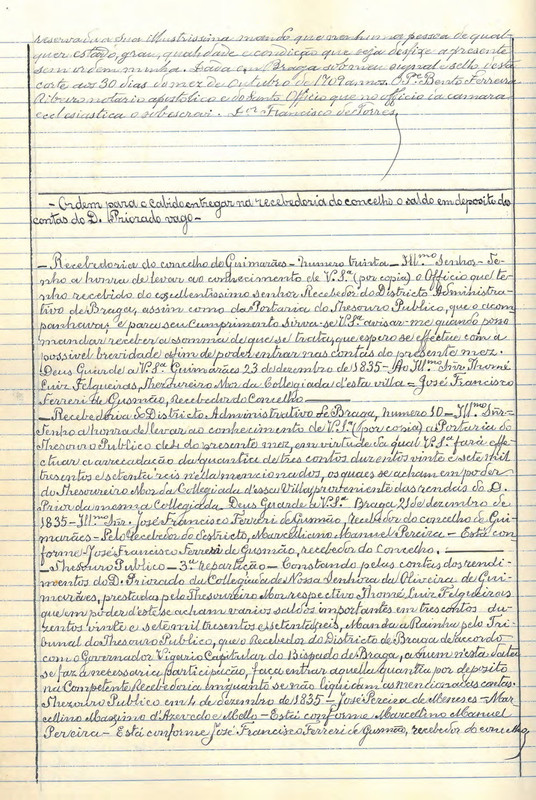 reservada a sua Illustrissima mando que nenhuma pessoa de qual-
quer estado, grau, qualidade e condição que seja desfize a presente
sem ordem minha. Dada em Braga sob meu signal e sello desta
corte aos 30 dias do mez de Outubro de 1709 annos. Bento Ferreira
notario apostolico e do Santo Officio que no officio da camara
ecclesiastica o sobescrevi. Francisco de Torres
- Ordem para o cabido entregar na recebedoria do concelho o saldo em deposito das
contas do D. Priorado vago -
- Recebedoria do concelho de Guimarães - Numero trinta - Ill.mo Senhor - Te-
nho a honra de levar ao conhecimento de V. S.a (por copia) o Officio que te-
nho recebido do excellentissimo senhor Recebedor do Districto Administra-
tivo de Braga, assim como da Portaria do Thesouro Publico, que o acom-
panhava; e para seu cumprimento sirva-se V. S.a avisar-me quando posso
mandar receber a somma de que se trata, que espero se effectue com a
possivel brevidade afim de poder entrar nas contas do presente mez.
Deus Guarde a V. S.a Guimarães 23 de dezembro de 1835 - Ao Ill.mo Snr. Thomé
Luiz Felgueiras, Thezoureiro Mor da Collegiada d'esta villa = José Francisco
Ferreri de Gusmão, Recebedor do Concelho
- Recebedoria do Districto Administrativo de Braga, numero 10 - Ill.mo Snr. -
Tenho a honra de levar ao conhecimento de V. S.a (por copia) a Portaria do
Thesouro Publico de 4 do presente mez, em virtude da qual V. S.a fará effe-
ctuar a arrecadação da quantia de tres contos duzentos vinte e sete mil
trezentos e setenta reis n'ella mencionados, os quaes se acham em poder
do Thesoureiro Mor da Collegiada d'essa Villa, proveniente das rendas do D.
Prior da mesma Collegiada. Deus Guarde a V. S.a Braga 21 de dezembro de
1835 - Ill.mo Snr. José Francisco Ferreri de Gusmão, recebedor do concelho de Gui-
marães - Pelo Recebedor do Districto, Marcellino Manuel Pereira - Está con-
forme - José Francisco Ferreri de Gusmão, recebedor do Concelho. -
- Thesouro Publico - 3.a repartição - Constando pelas contas dos rendi-
mentos do D. Priorado da Collegiada de Nossa Senhora da Oliveira de Gui-
marães, prestadas pelo Thesoureiro Mor respectivo Thomé Luiz Felgueiras
que em poder d'este se acham varios saldos importantes em tres contos du-
zentos vinte e sete mil tresentos e setenta reis, Manda a Rainha pelo Tri-
bunal do Thesouro Publico, que o Recebedor do Districto de Braga de accordo
com o Governador Vigario Capitular do Bispado de Braga, a quem n'esta data
se faz a necessaria participação, faça entrar aquella quantia por deposito
na Competente Recebedoria emquanto se não liquidam as mencionadas contas.
Thezouro Publico em 4 de dezembro de 1835 - José Pereira de Menezes - Mar-
cellino Maximo d'Azevedo e Mello - Está conforme Marcellino Manuel
Pereira - Está conforme José Francisco Ferreri de Gusmão, recebedor do concelho